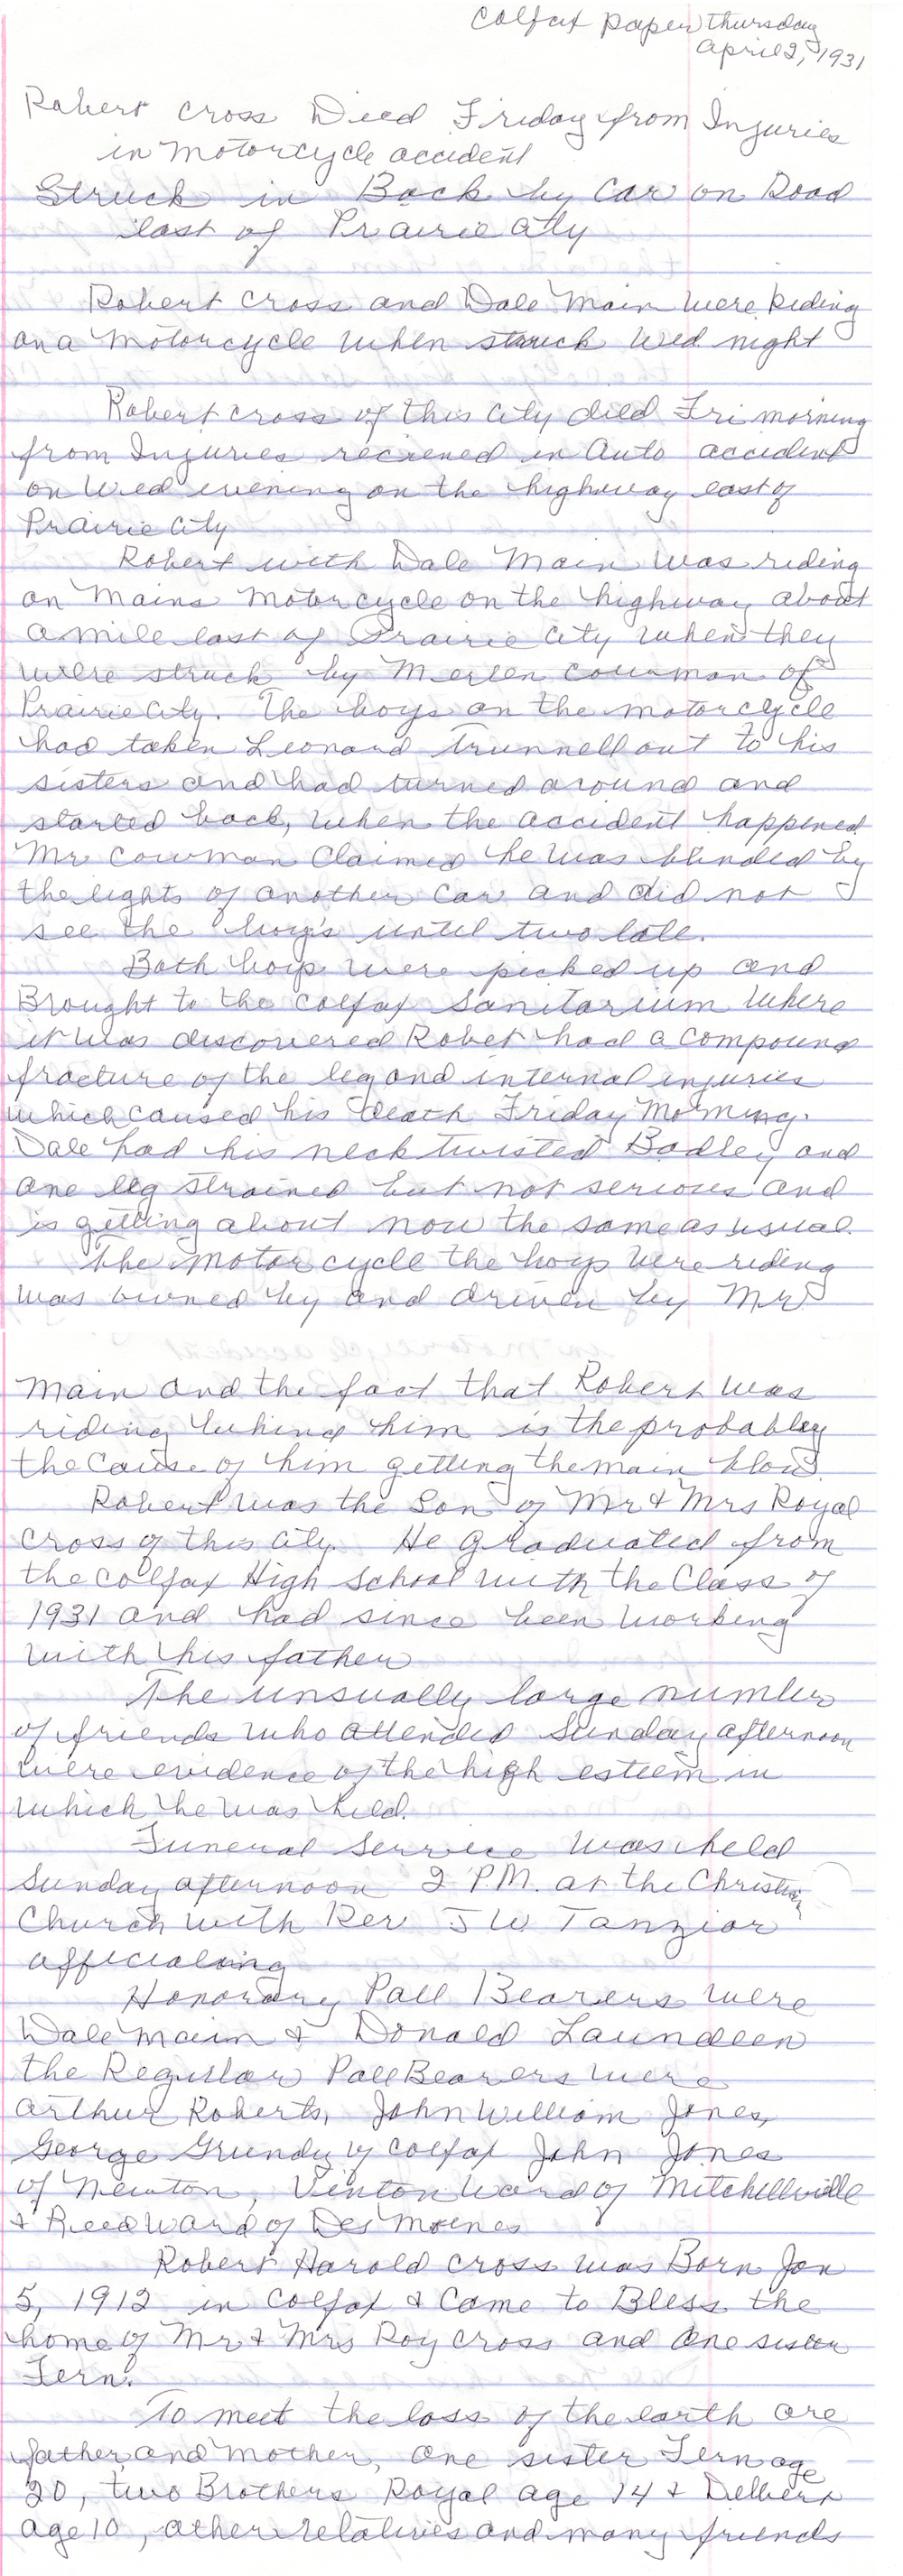 Colfax paper Thursday
April 2, 1931
Robert Cross Died Friday from Injuries
in Motorcycle accident
Struck in Back by Car on Road
East of Prairie City
Robert Cross and Dale Main were Riding
on a Motorcycle when struck Wed night
Robert Cross of this City died Fri morning
from Injuries recieved in Auto accident
on Wed evening on the highway east of
Prairie City
Robert with Dale Main was riding
on Mains Motorcycle on the highway about
a mile East of Prairie City when they
were struck by Merlen Cowman of
Prairie City. The boys on the motorcycle
had taken Leonard Trunnell out to his
sisters and had turned around and
started back, when the accident happened.
Mr Cowman Claimed he was blinded by
the lights of another Car and did not
see the boy's until two late.
Both boys were picked up and
Brought to the Colfax Sanitarium where
it was discovered Robet had a compound
fracture of the leg and internal injuries
which caused his Death Friday Morning.
Dale had his neck twisted Badley and
one leg strained but not serious and
is getting about now the same as usual.
The motorcycle the boys were riding
was owned by and driven by Mr
Main and the fact that Robert was
riding behind him is the probabley
the Cause of him getting the main blow.
Robert was the Son of Mr & Mrs Royal
Cross of this City. He graduated from
the Colfax High School with the Class of
1931 and had since been working
with his father
The unsually large number
of friends who attended Sunday afternoon
were evidence of the high esteem in
which he was held.
Funeral Service was held
Sunday afternoon 2 P.M. at the Christian
Church with Rev J W Tanzior
officialing
Honorary Pall Bearers were
Dale Main & Donald Laundeen
the Regullar Pall Bearers were
Arthur Roberts, John William Jones,
George Grundy of Colfax John Jones
of Newton, Vinton Ward of Mitchellville
& Reed Ward of Des Moines
Robert Harold Cross was Born Jan
5, 1912 in Colfax & Came to Bless the
home of Mr & Mrs Roy Cross and One sister
Fern.
To meet the loss of the earth are
father and mother, one sister Fern age
20, two Brothers Royal age 14 & Delbert
age 10, other relatives and many friends